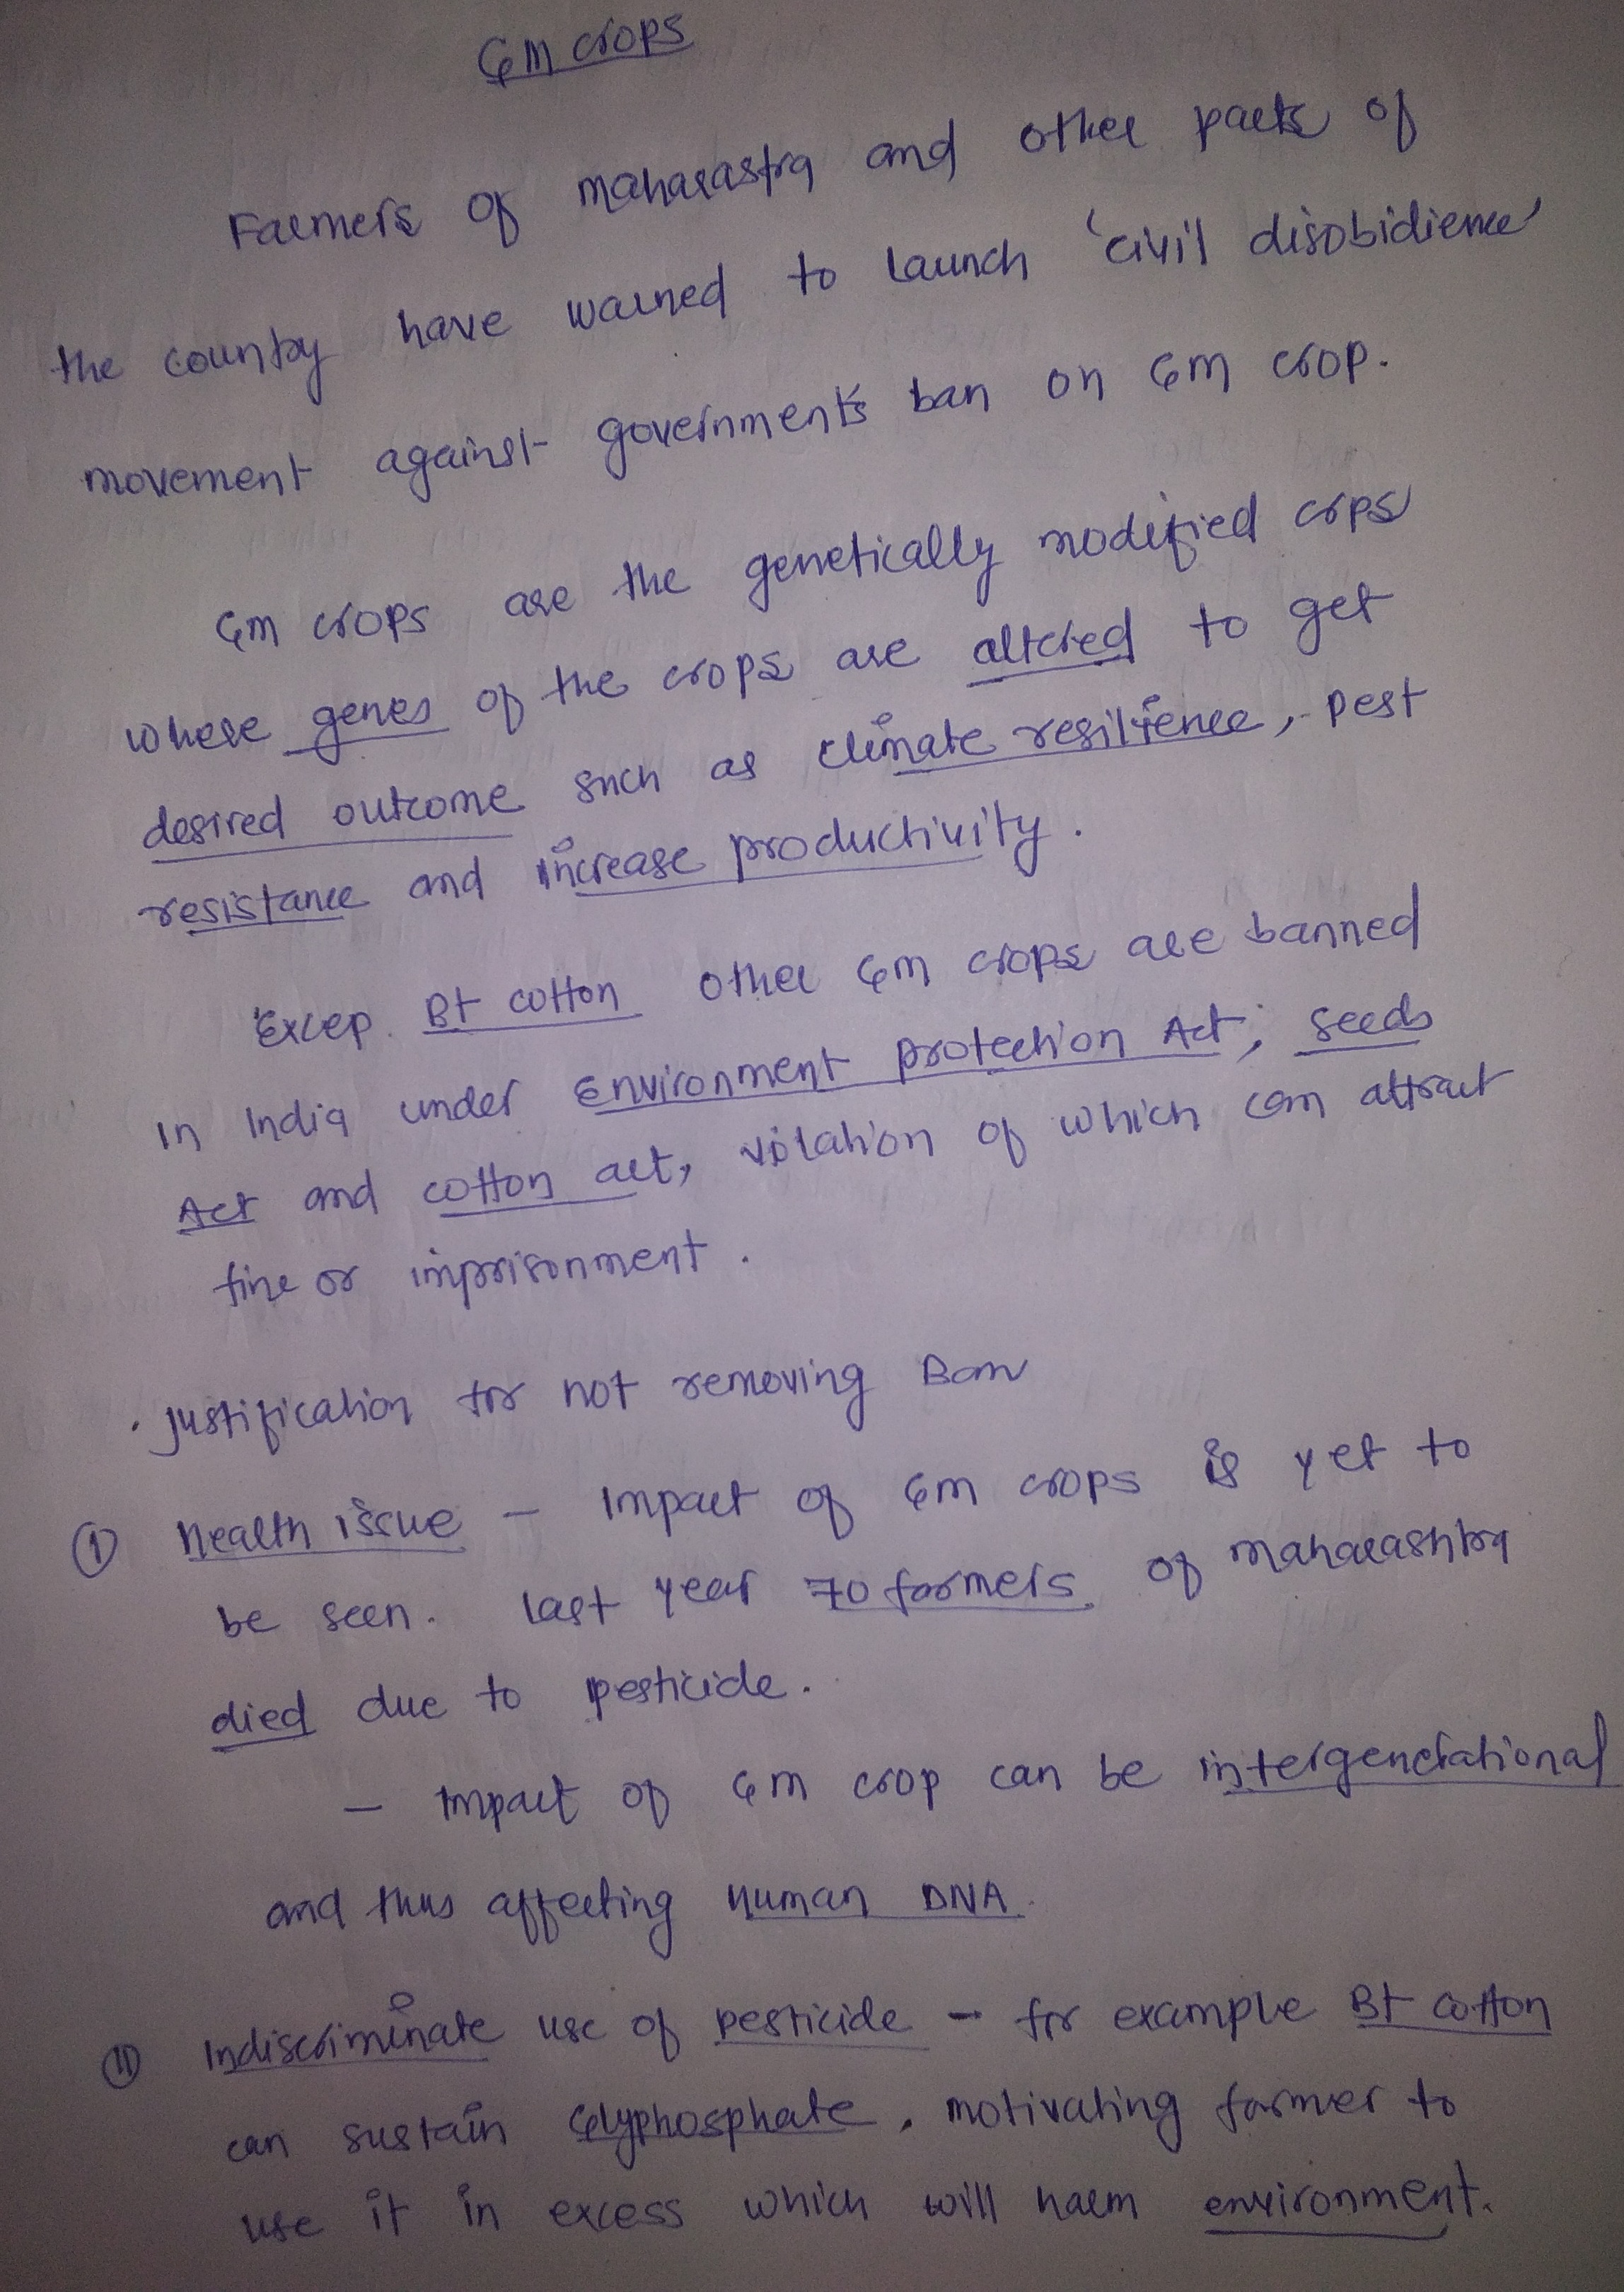 GM crops
Farmers of maharastra and other parts of
the country have warned to launch 'civil disobidience'
movement against government's ban on GM crop.
GM crops are the genetically modified crps
where genes of the crops are altered to get
desired outcome such as climate resilience, pest
resistance and increase productivity.
Excep. Bt cotton other GM crops are banned
in India under Environment protection Act, seeds
Act and cotton act, violation of which can attract
fine or imprisonment.
. Justification for not removing Ban
(I) Health issue - Impact of GM crops is yet to
be seen. last year 70 farmers of maharashtra
died due to pesticide.
- Impact of GM crop can be intergenerational
and thus affecting Human DNA.
(II) Indiscriminate use of pesticide - for example Bt cotton
can sustain Glyphosphate, motivating farmer to
use it in excess which will harm environment.